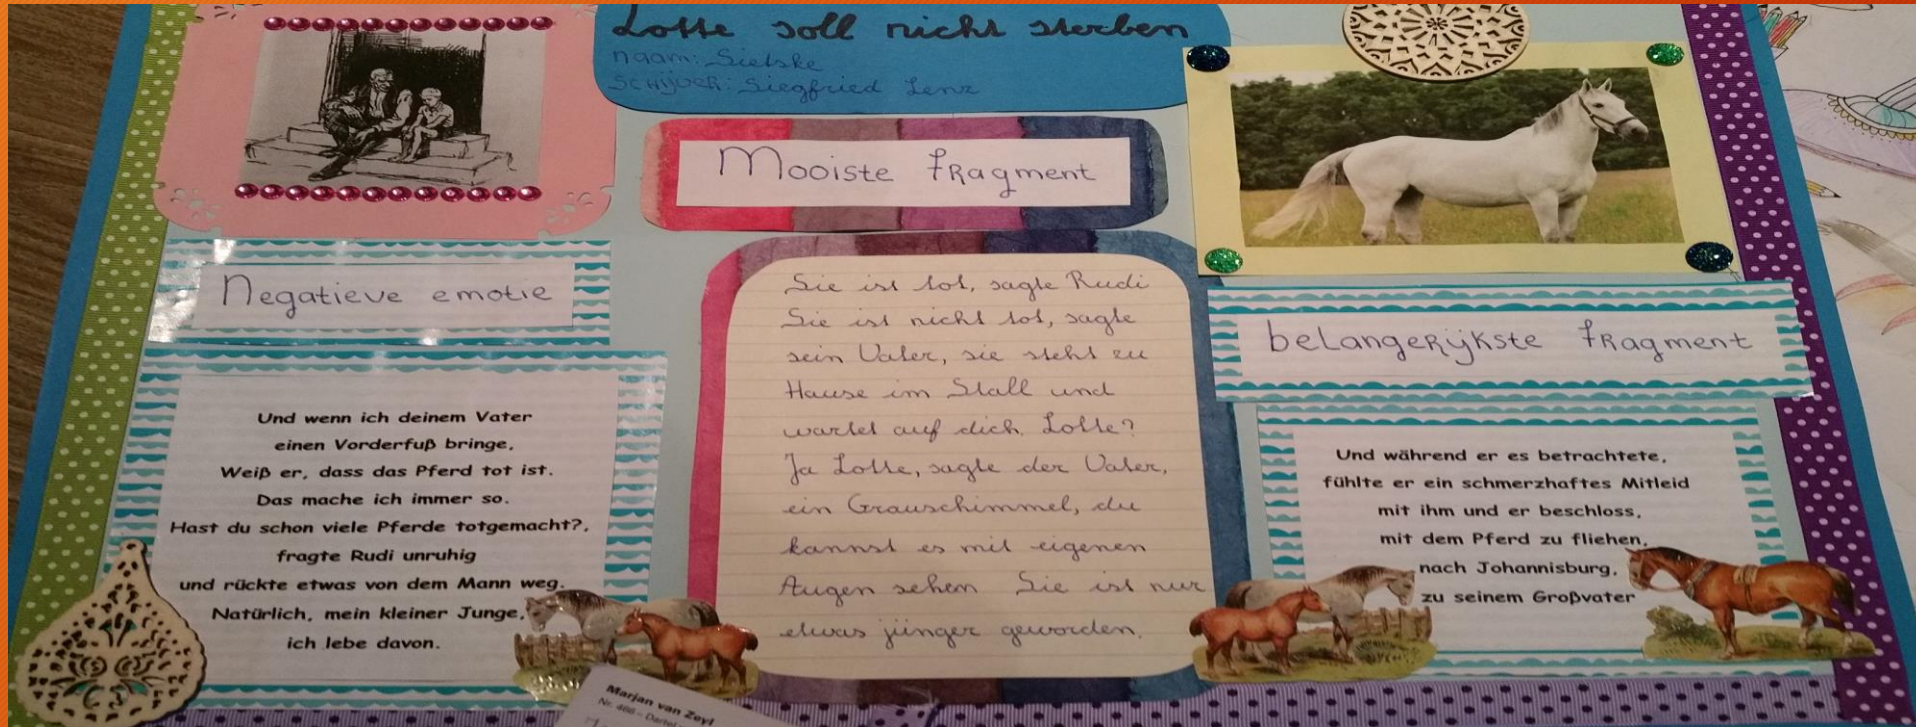 Lotte soll nicht sterben
naam: Sietske
Schijver: Siegfried Lenz
Mooiste fragment
Negatieve emotie
Und wenn ich deinem Vater
einen Vorderfuß bringe,
Weiß er, dass das Pferd tot ist.
Das mache ich immer so.
Hast du schon viele Pferde totgemacht?,
fragte Rudi unruhig
und rückte etwas von dem Mann weg.
Natürlich, mein kleiner Junge,
ich lebe davon.
Sie ist tot, sagte Rudi
Sie ist nicht tot, sagte
sein Vater, sie steht zu
Hause im Stall und
wartet auf dich. Lotte?
Ja Lotte, sagte der Vater,
ein Grauschimmel, du
kannst es mit eigenen
Augen sehen Sie ist nur
etwas jünger geworden.
belangerijkste fragment
Und während er es betrachtete,
fühlte er ein schmerzhaftes Mitleid
mit ihm und er beschloss,
mit dem Pferd zu fliehen,
nach Johannisburg,
zu seinem Großvater
Marjan van Zeyl